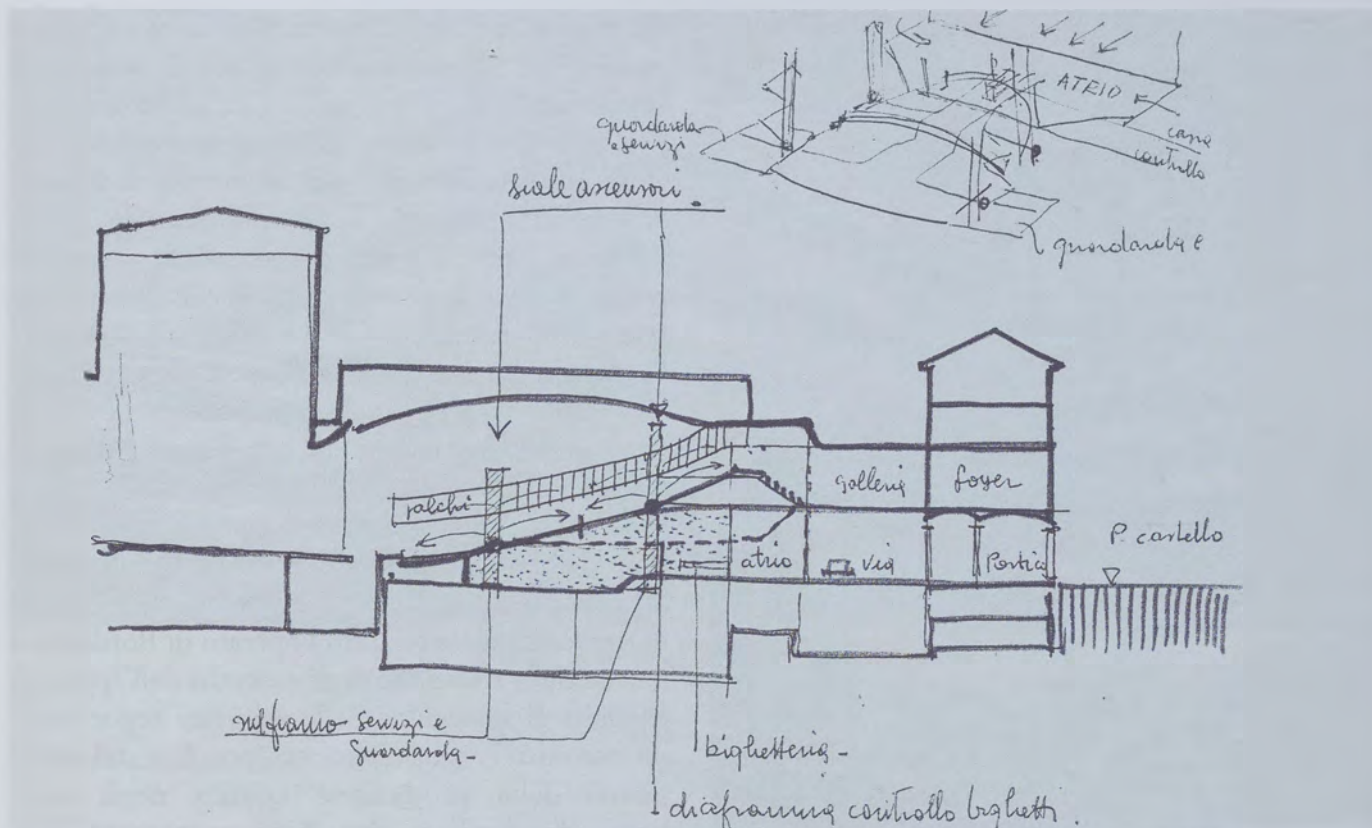 ATRIO
guardaroba
e servizi
cassa
controllo
guardaroba e
scale ascensori.
palchi
galleria
foyer
atrio
via
Portico
P. castello
servizi e
guardaroba-
biglietteria-
diaframma controllo biglietti.